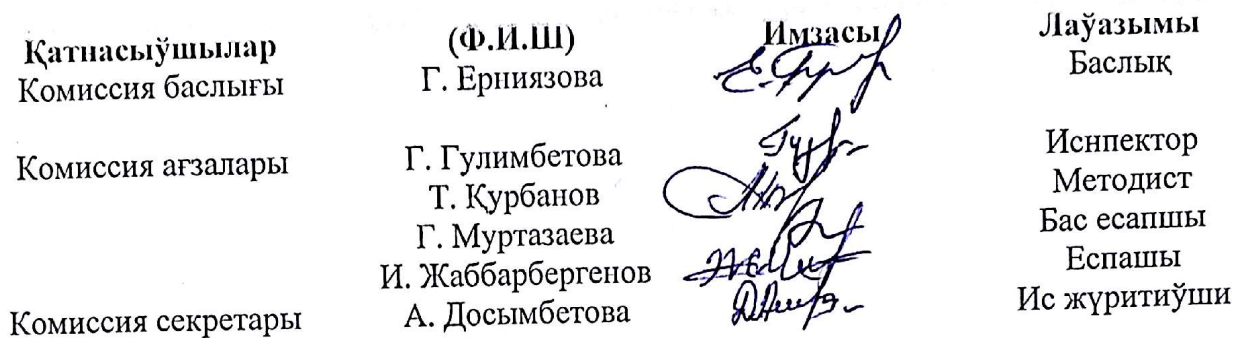 Қатнасыўшылар (Ф.И.Ш) Имзасы Лаўазымы
Комиссия баслығы Г. Ерниязова Баслық
Комиссия ағзалары Г. Гулимбетова Иснпектор
Т. Қурбанов Методист
Г. Муртазаева Бас есапшы
И. Жаббарбергенов Еспашы
Комиссия секретары А. Досымбетова Ис жүритиўши